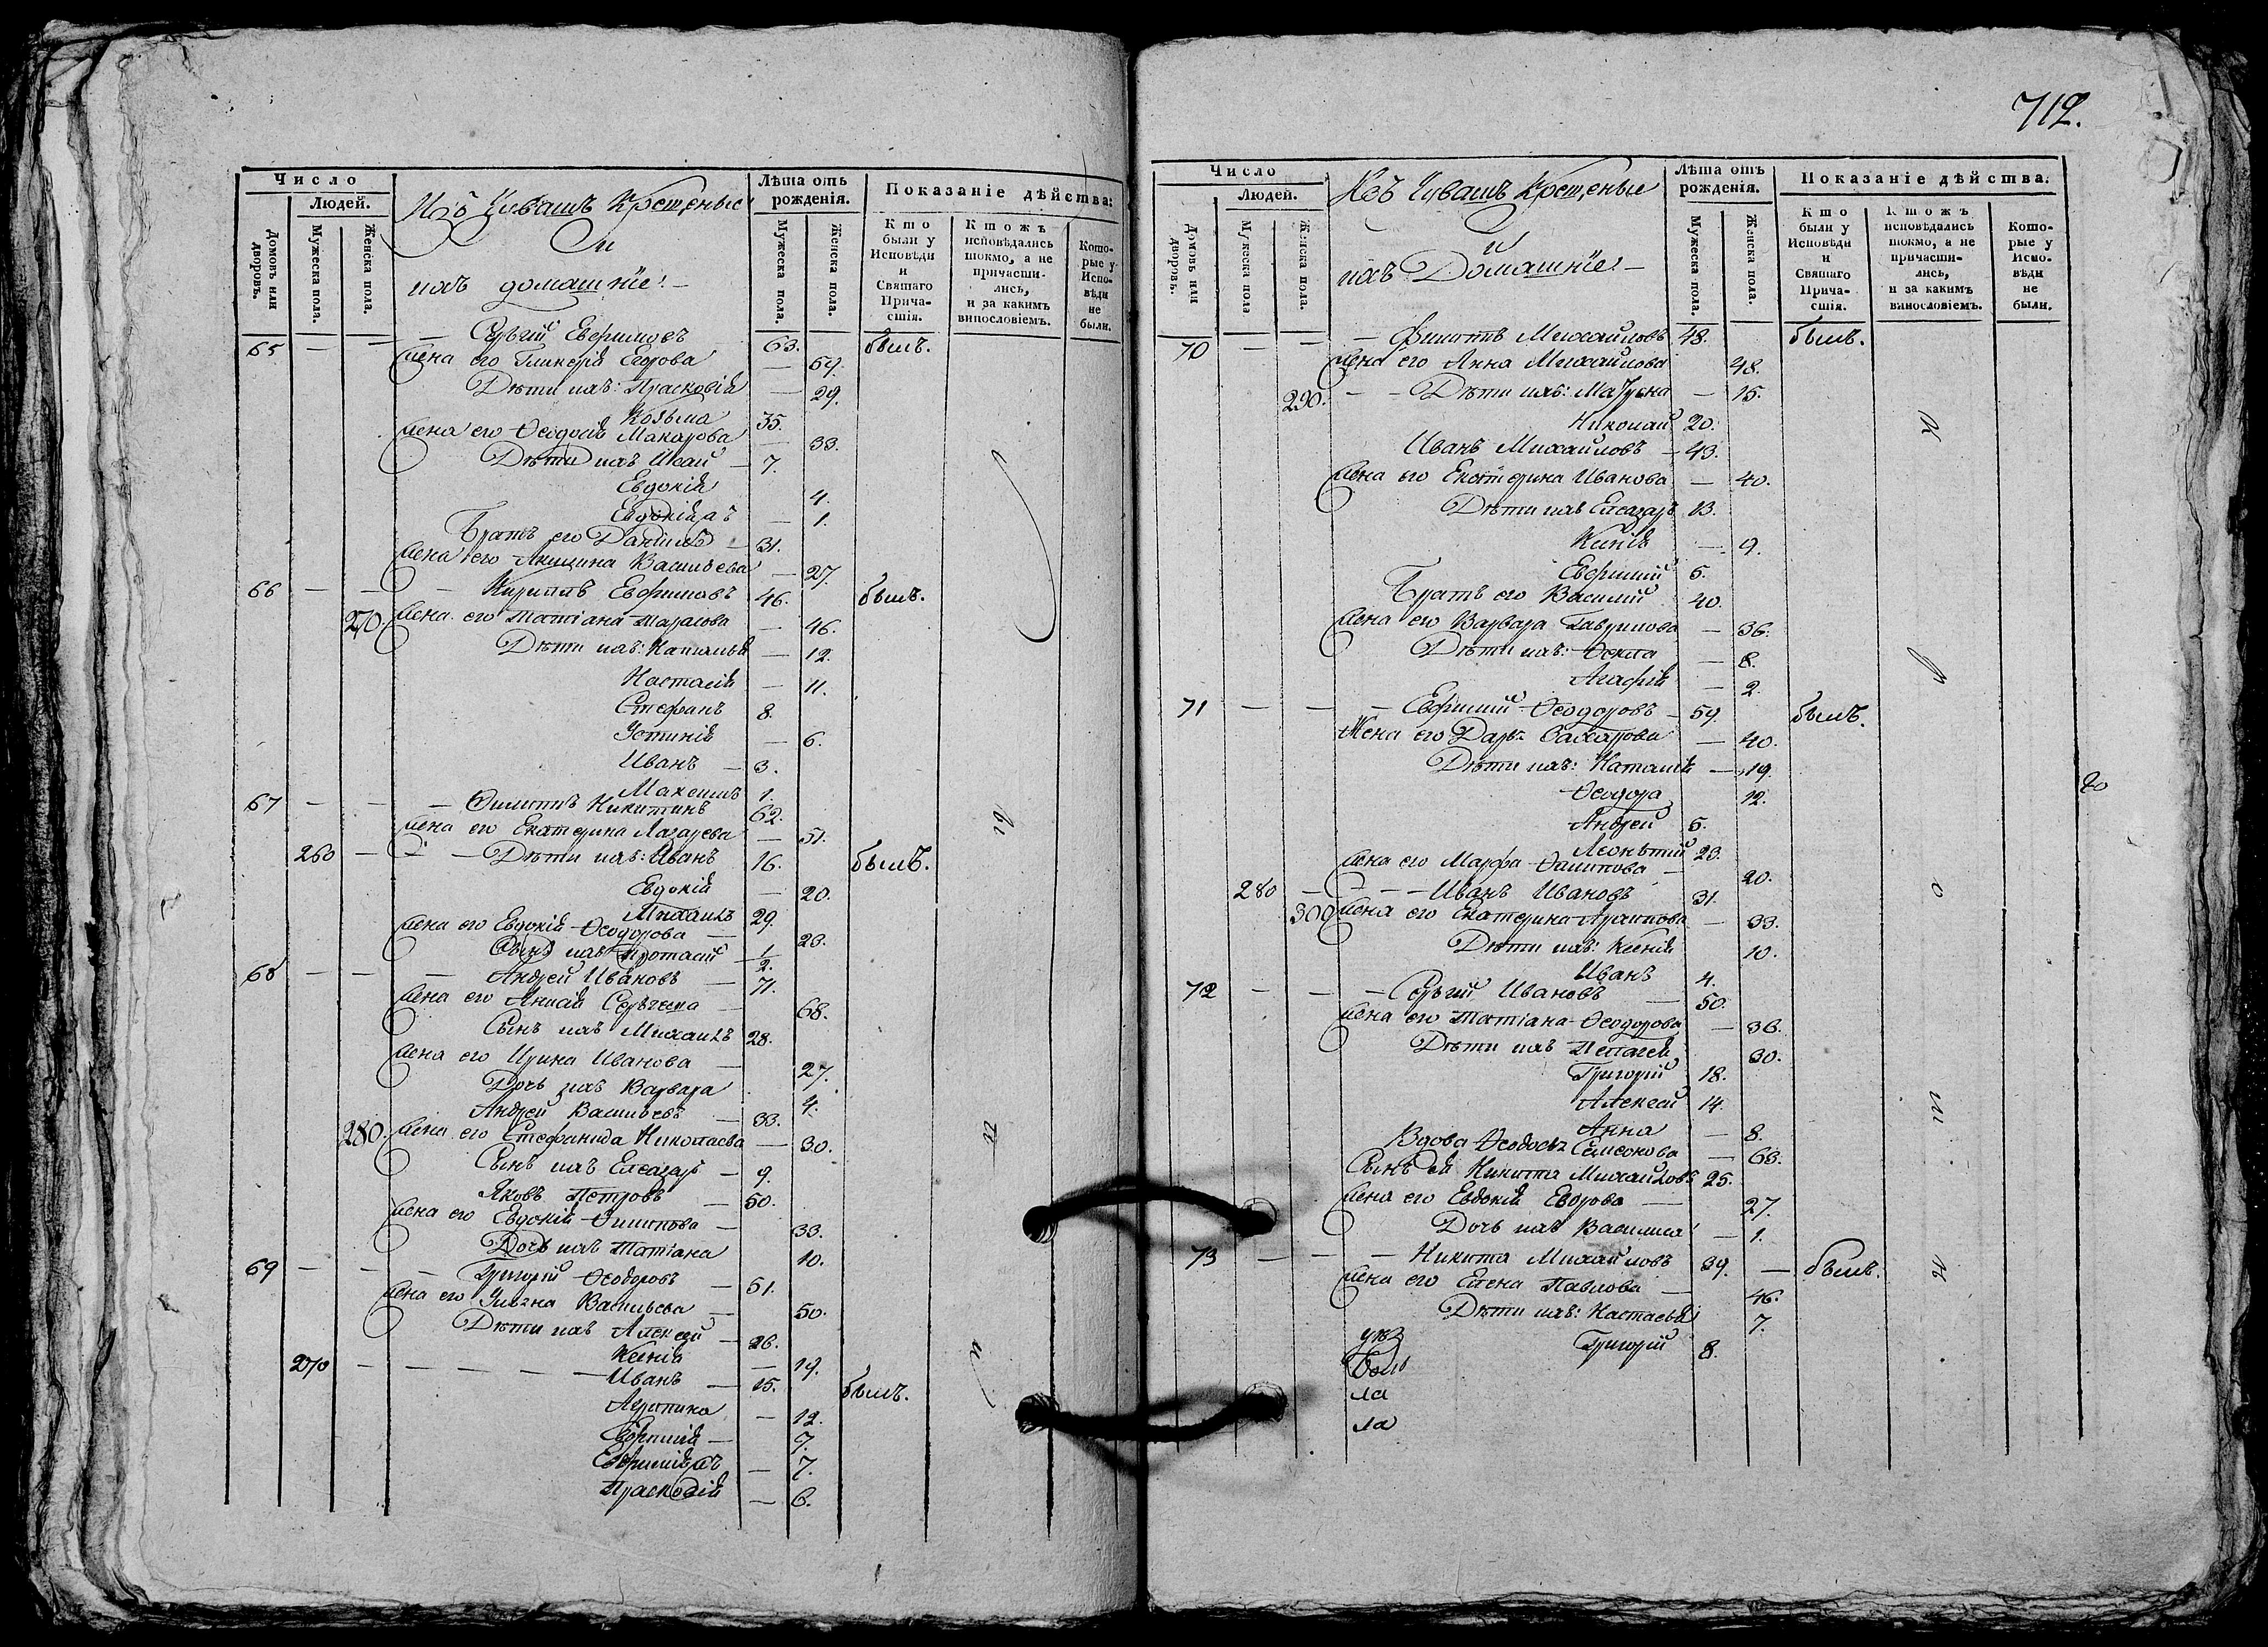 Число
Людей.
Домовъ или дворовъ.
Мужеска пола.
Женска пола.
Изъ Чувашъ Крещеные
и
ихъ домашніе. —
Лѣта отъ рожденія.
Мужеска пола.
Женска пола.
Показаніе дѣйства:
Кто были у Исповѣди и Святаго Причастія.
Ктожъ исповѣдались токмо, а не причастились, и за какимъ винословіемъ.
Которые у Исповѣди не были.
65 — — — Сергѣй Евфимовъ 63. былъ.
Жена его Гликерія Егорова — 69.
Дѣти ихъ: Прасковія — 29.
Козьма 35.
Жена его Ѳеодосія Макарова — 33.
Дѣти ихъ — 7.
Евдокія 4.
Евдокія а҃ — 1.
Братъ его Даніилъ — 31.
Жена его Акилина Васильева — 27.
66 — — — Кириллъ Евфимовъ 46. былъ.
270. Жена его Татіана Тарасова — 46.
Дѣти ихъ: Наталья — 12.
Настасія — 11.
Стефанъ 8.
Устинія — 6.
Иванъ — 3.
Максимъ 1.
67 — — — Филиппъ Никитинъ 62.
Жена его Екатерина Лазарева — 51.
260 — — — Дѣти ихъ: Иванъ 16. былъ.
Евдокія — 20.
Михаилъ 29.
Жена его Евдокія Ѳеодорова — 23.
Сынъ ихъ Протасій 1/2.
68 — — — Андрей Ивановъ — 71.
Жена его Анисія Сергѣева — 68.
Сынъ ихъ Михаилъ 28.
Жена его Ирина Иванова — 27.
Дочь ихъ Варвара 4.
Андрей Васильевъ — 33.
280. Жена его Стефанида Николаева — 30.
Сынъ ихъ Елеазаръ — 9.
Яковъ Петровъ — 50.
Жена его Евдокія Филипова — 33.
Дочь ихъ Татіана 10.
69 — — — Григорій Ѳеодоровъ — 51.
Жена его Ульяна Васильева — 50.
Дѣти ихъ Алексей — 26.
Ксенія — 19.
270 — — — — — Иванъ — 15. былъ.
Агрипина — 12.
Евфимія — 7.
Евфимія а҃ — 7.
Прасковія — 6.
б
ы
т
и
712.
Число
Людей.
Домовъ или дворовъ.
Мужеска пола
Женска пола.
Изъ Чувашъ Крещеные
и
ихъ Домашніе. —
Лѣта отъ рожденія.
Мужеска пола.
Женска пола.
Показаніе дѣйства.
Кто были у Исповѣди и Святаго Причастія.
Ктожъ исповѣдались токмо, а не причастились, и за какимъ винословіемъ.
Которые у Исповѣди не были.
70 — — — Филиппъ Михайловъ 48. былъ.
Жена его Анна Михайлова 48.
290. — — Дѣти ихъ: Матрена — 15.
Николай 20.
Иванъ Михайловъ — 43.
Жена его Екатерина Иванова — 40.
Дѣти ихъ Елеазаръ 13.
— 9.
Евфимій 5.
Братъ его Василий 40.
Жена его Варвара Гаврилова — 36.
Дѣти ихъ: Ѳекла — 8.
Агафія — 2.
71 — — — Евфимий Ѳеодоровъ — 59. былъ.
Жена его Дарья Захарова — 40.
Дѣти ихъ: Наталія — 19.
Ѳеодора 12.
Андрей 5.
Леонтий 23.
Жена его Марфа Филипова — 20.
280 — — — Иванъ Ивановъ 31.
300. Жена его Екатерина — 33.
Дѣти ихъ: Ксенія 10.
Иванъ 4.
72 — — — Сергѣй Ивановъ — 50.
Жена его Татіана Ѳеодорова — 36.
Дѣти ихъ Пелагея 30.
Григорій 18.
Алексей 14.
Анна — 8.
Вдова Ѳеодосья Семенова — 63.
Сынъ ея Никита Михайловъ 25.
Жена его Евдокія Егорова — 27.
Дочь ихъ Василиса — 1.
73 — — — Никита Михайловъ 39. — былъ.
Жена его Елена Павлова — 46.
Дѣти ихъ: Настасья 7.
Григорій 8.
ла
ла
о
т
го